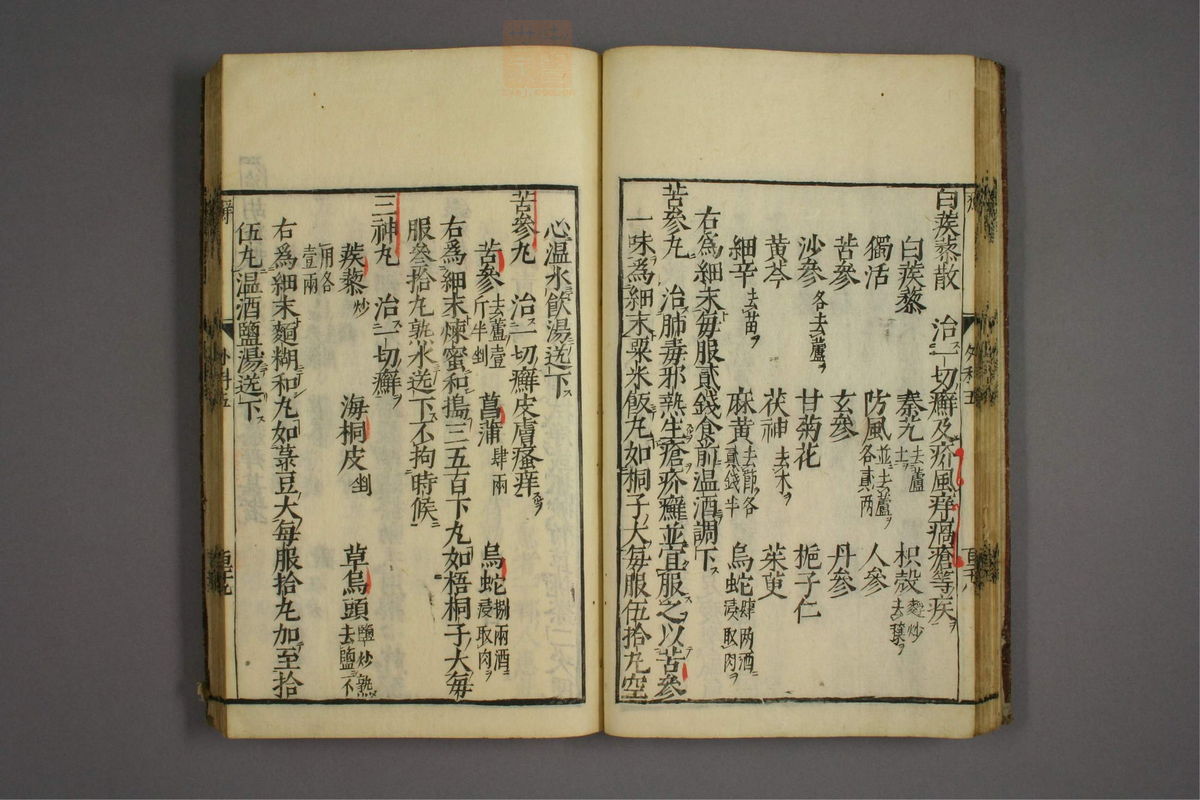 白蒺藜散　治一切癬及疥風痒瘑瘡等疾
白蒺藜　秦艽去蘆土　枳殼麩炒去穰
獨活　防風並去蘆各貳两　人參
苦參　玄參　丹參
沙參各去蘆　甘菊花　梔子仁
黄芩　茯神去木　茱萸
細辛去苗　麻黄去節各貳錢半　烏蛇肆两酒浸取肉
右為細末每服貳錢食前温酒調下
苦參丸　治肺毒邪熱生瘡疥癬並宜服之以苦參
一味為細末粟米飯丸如桐子大每服伍拾丸空
心温水飲湯送下
苦參丸　治一切癬皮膚瘙痒
苦參去蘆壹斤半剉　菖蒲肆兩　烏蛇捌兩酒浸取肉
右爲細末煉蜜和搗三五百下丸如梧桐子大每
服叁拾丸熟水送下不拘時候
三神丸　治一切癬
蒺藜炒　海桐皮剉　草烏頭鹽炒熟去鹽不
用各壹兩
右爲細末麵糊和丸如菉豆大每服拾丸加至拾
伍丸温酒鹽湯送下